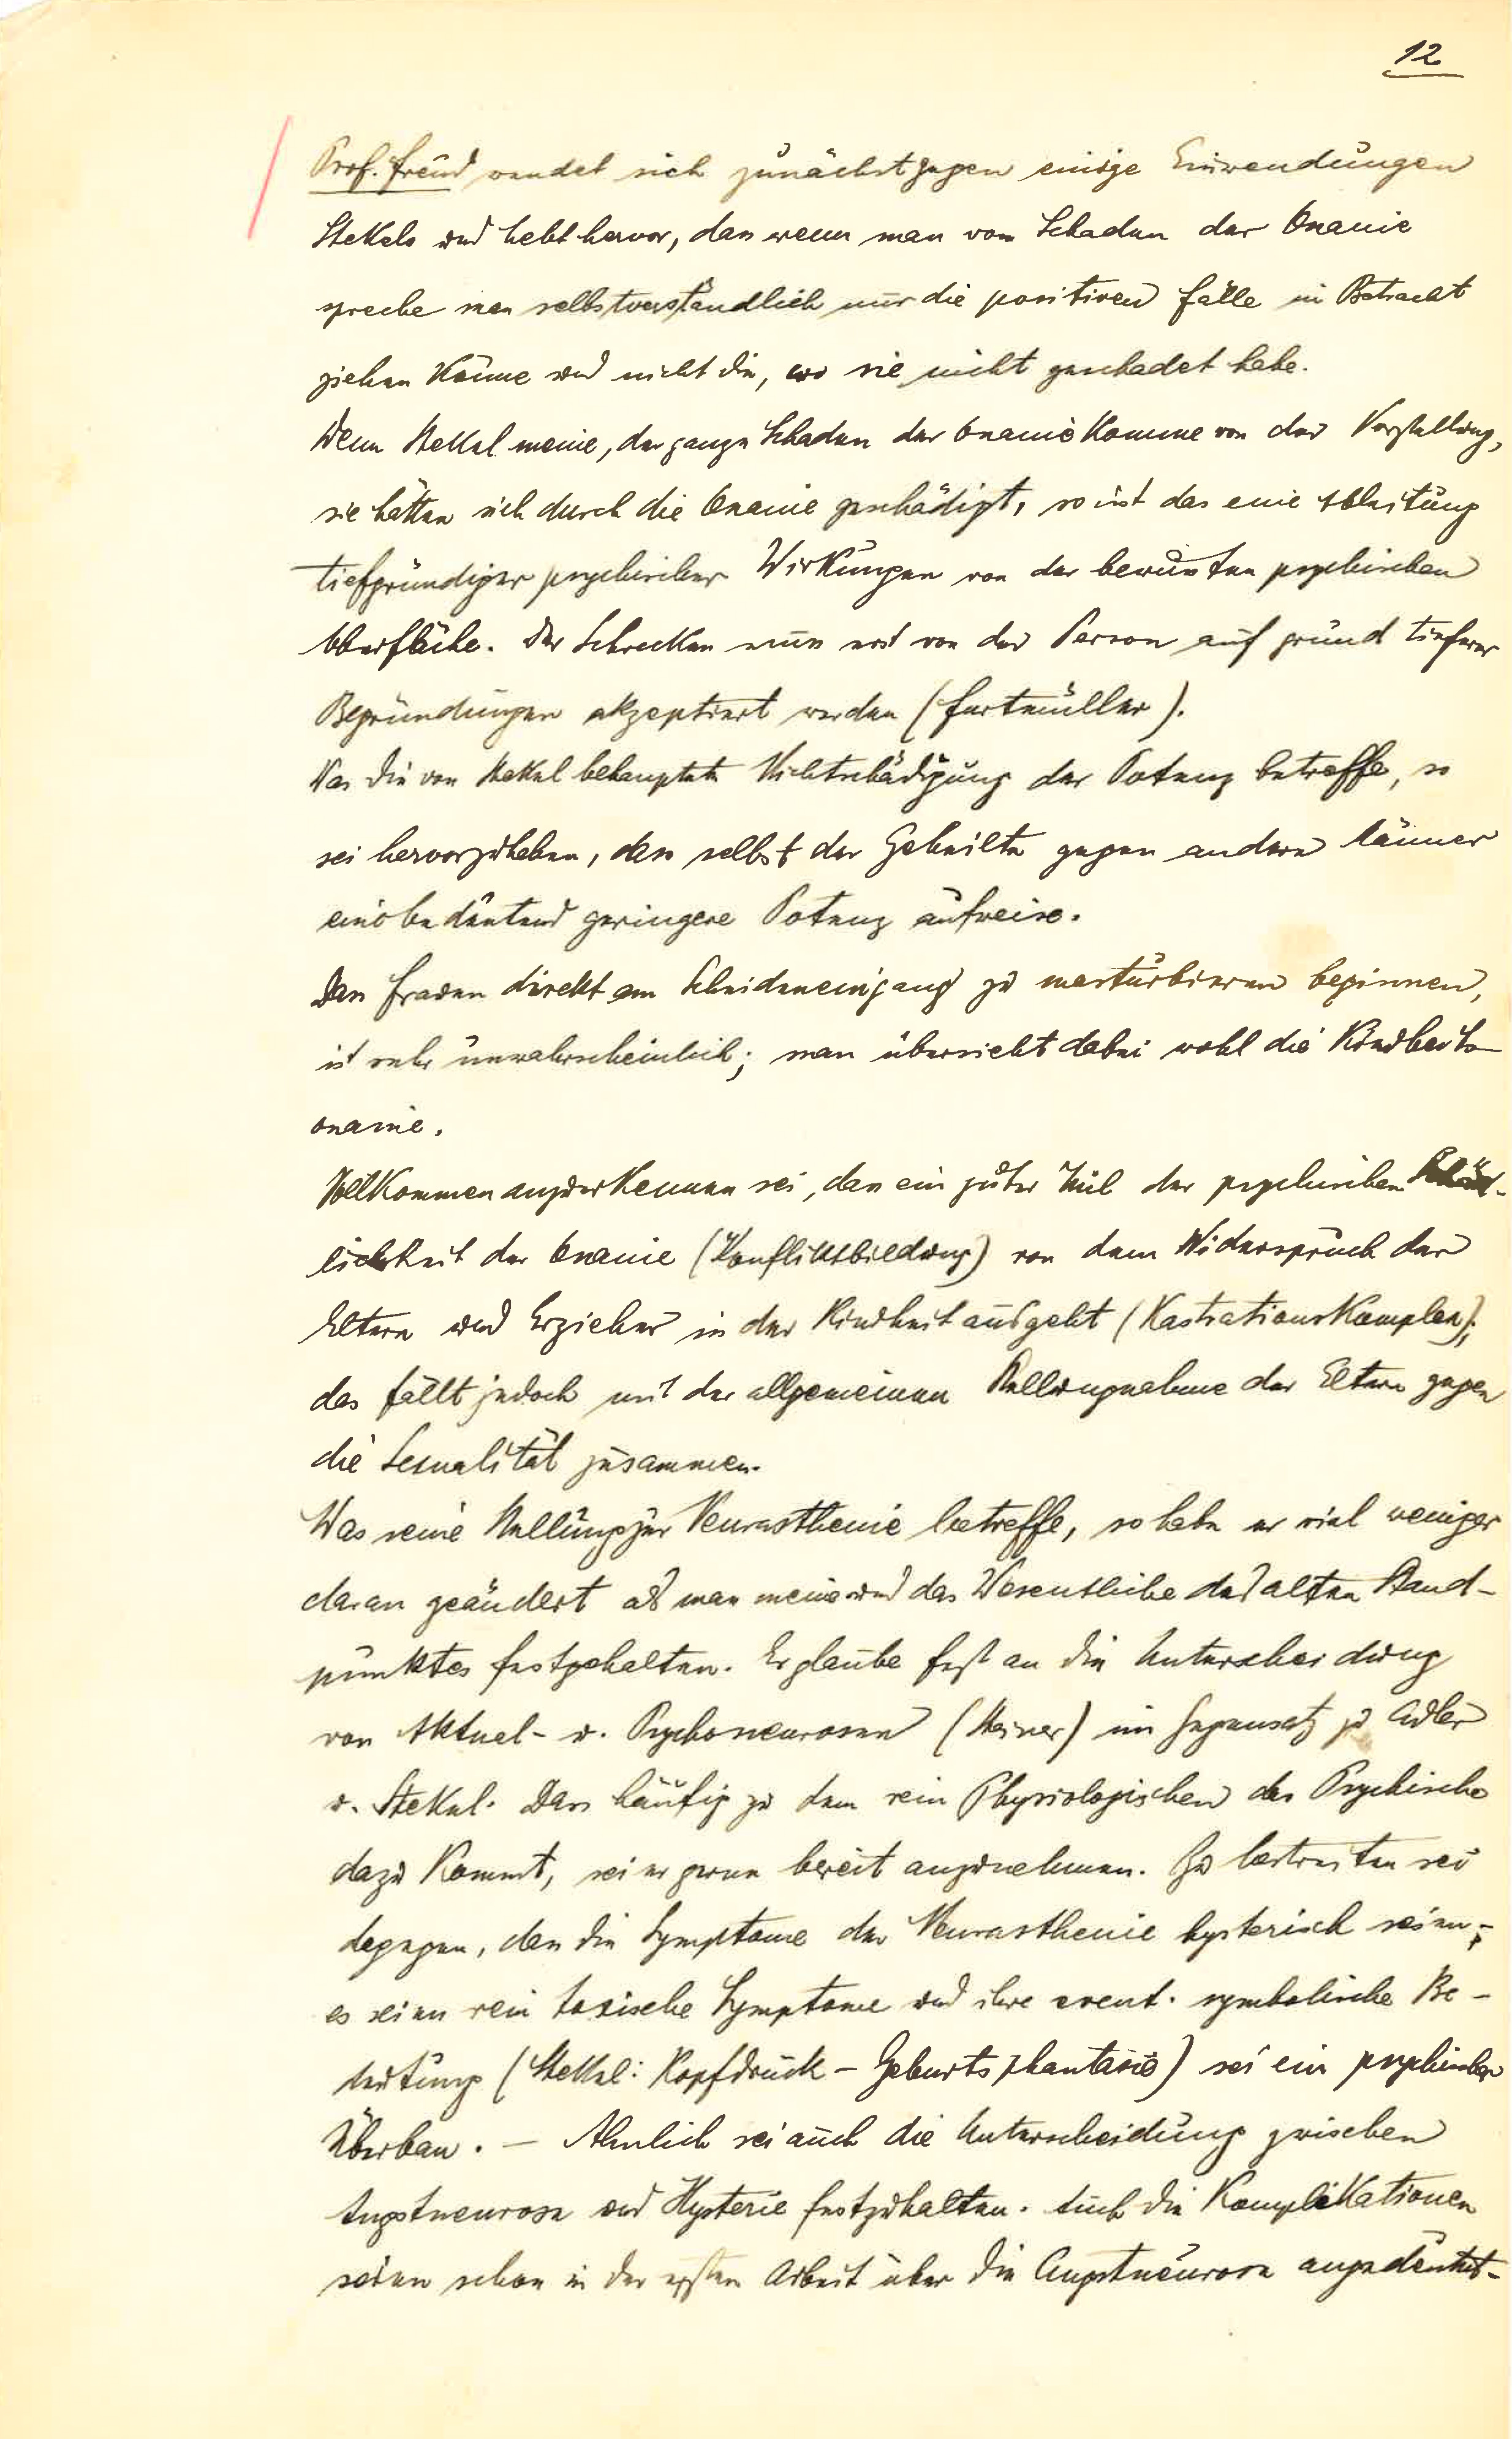 12
Prof. Freud wendet sich zunächst gegen einige Einwendungen
Stekels und hebt hervor, dass wenn man vom Schaden der Onanie
spreche man selbstverständlich nur die positiven Fälle in Betracht
ziehen könne und nicht die, wo sie nicht geschadet habe.
Wenn Stekel meine, der ganze Schaden der Onanie komme von der Vorstellung,
sie hätten sich durch die Onanie geschädigt, so ist das eine Ableitung
tiefgründiger psychischer Wirkungen von der bewussten psychischen
Oberfläche. Der Schrecken muss erst von der Person auf grund tieferer
Begründungen akzeptiert werden (Furtmüller).
Was die von Stekel behauptete Nichtschädigung der Potenz betreffe, so
sei hervorzuheben, dass selbst der Geheilte gegen andere Männer
eine bedeutend geringere Potenz aufweise.
Dass Frauen direkt am Scheideneingang zu masturbieren beginnen,
ist sehr unwahrscheinlich; man übersieht dabei wohl die Kindheits-
onanie.
Vollkommen anzuerkennen sei, dass ein guter Teil der psychischen Schäd-
lichkeit der Onanie (Konfliktsbildung) von dem Widerspruch der
Eltern und Erzieher in der Kindheit ausgeht (Kastrationskomplex);
das fällt jedoch mit der allgemeinen Stellungnahme der Eltern gegen
die Sexualität zusammen.
Was seine Stellung zur Neurasthenie betreffe, so habe er viel weniger
daran geändert als man meine und das Wesentliche des alten Stand-
punktes festgehalten. Er glaube fest an die Unterscheidung
von Aktual- u. Psychoneurosen (Steiner) im Gegensatz zu Adler
u. Stekel. Dass häufig zu dem rein Physiologischen das Psychische
dazu kommt, sei er gerne bereit anzunehmen. Zu bestreiten sei
dagegen, dass die Symptome der Neurasthenie hysterisch seien;
es seien rein toxische Symptome und ihre event. symbolische Be-
deutung (Stekel: Kopfdruck - Geburtsphantasie) sei ein psychischer
Überbau. — Ähnlich sei auch die Unterscheidung zwischen
Angstneurose und Hysterie festzuhalten. Auch die Komplikationen
seien schon in der ersten Arbeit über die Angstneurose angedeutet.